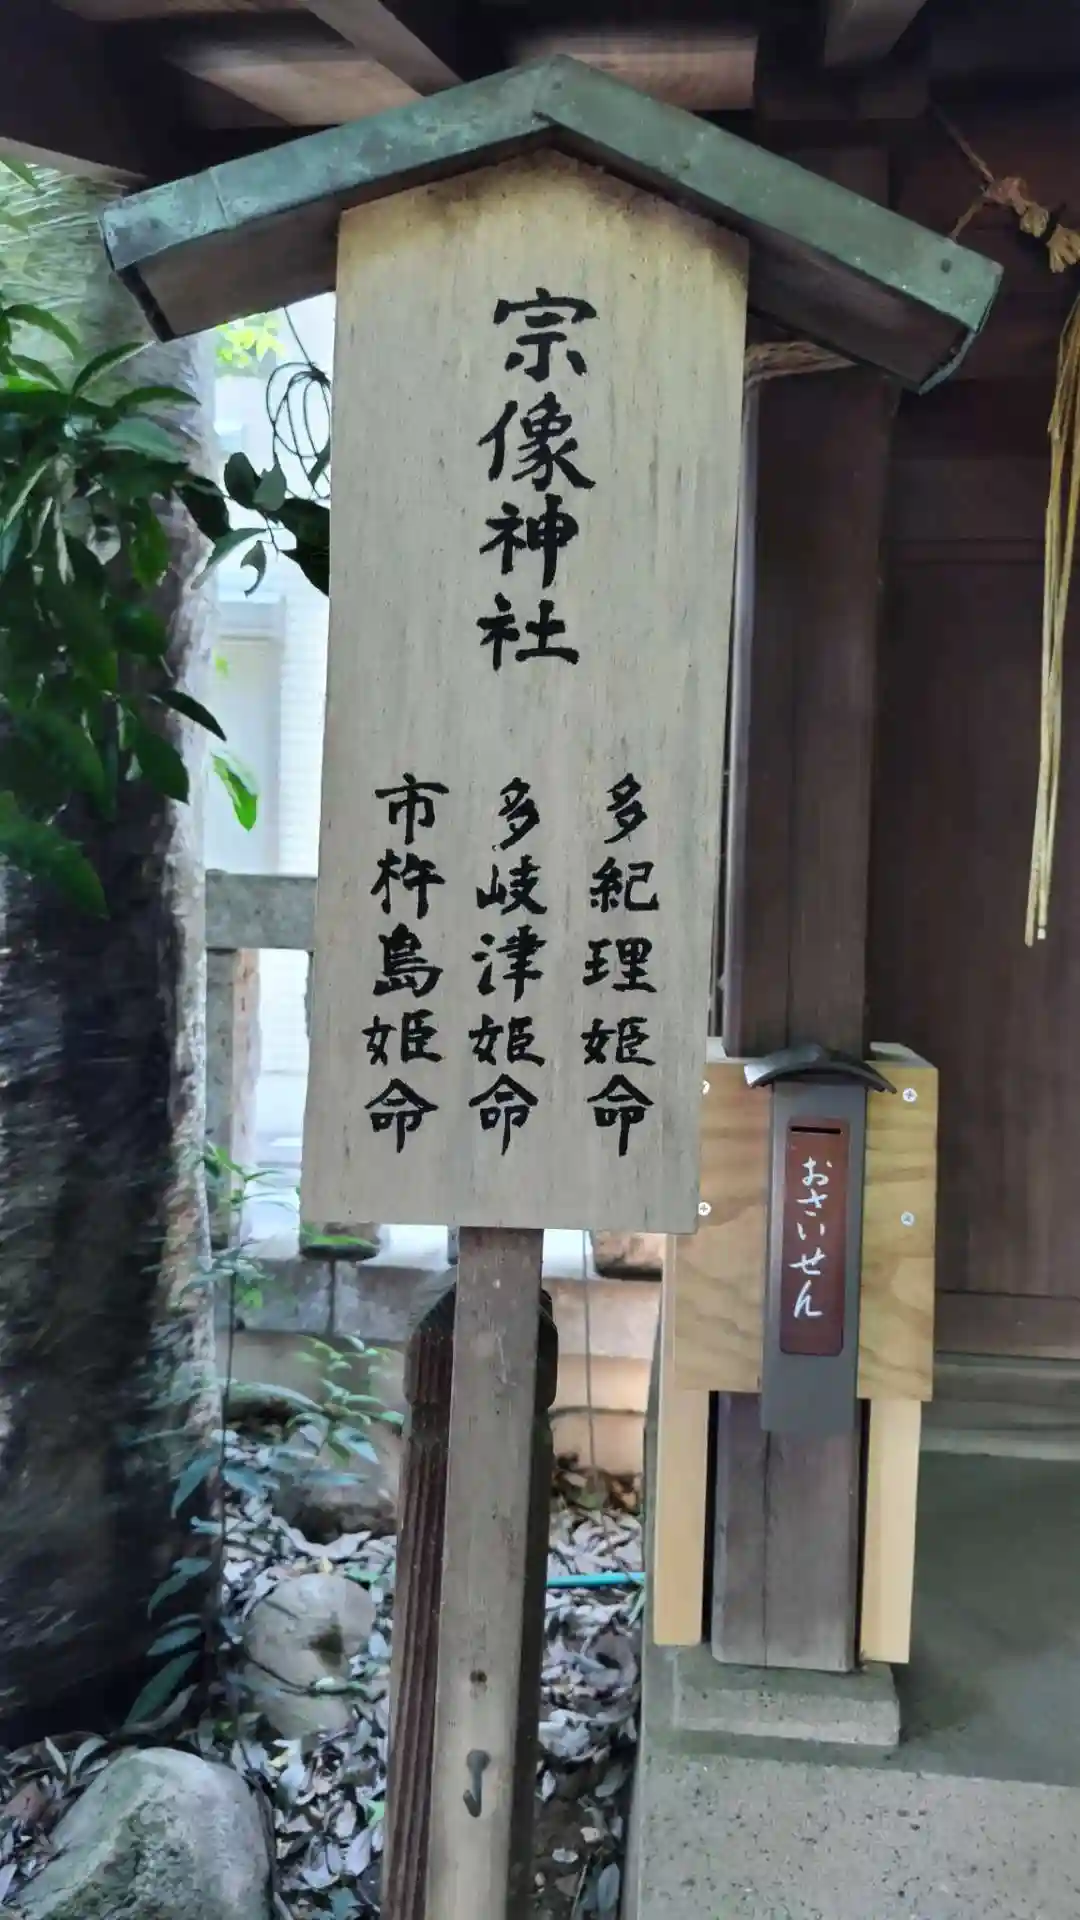 宗像神社
多紀理姫命
多岐津姫命
市杵島姫命
おさいせん